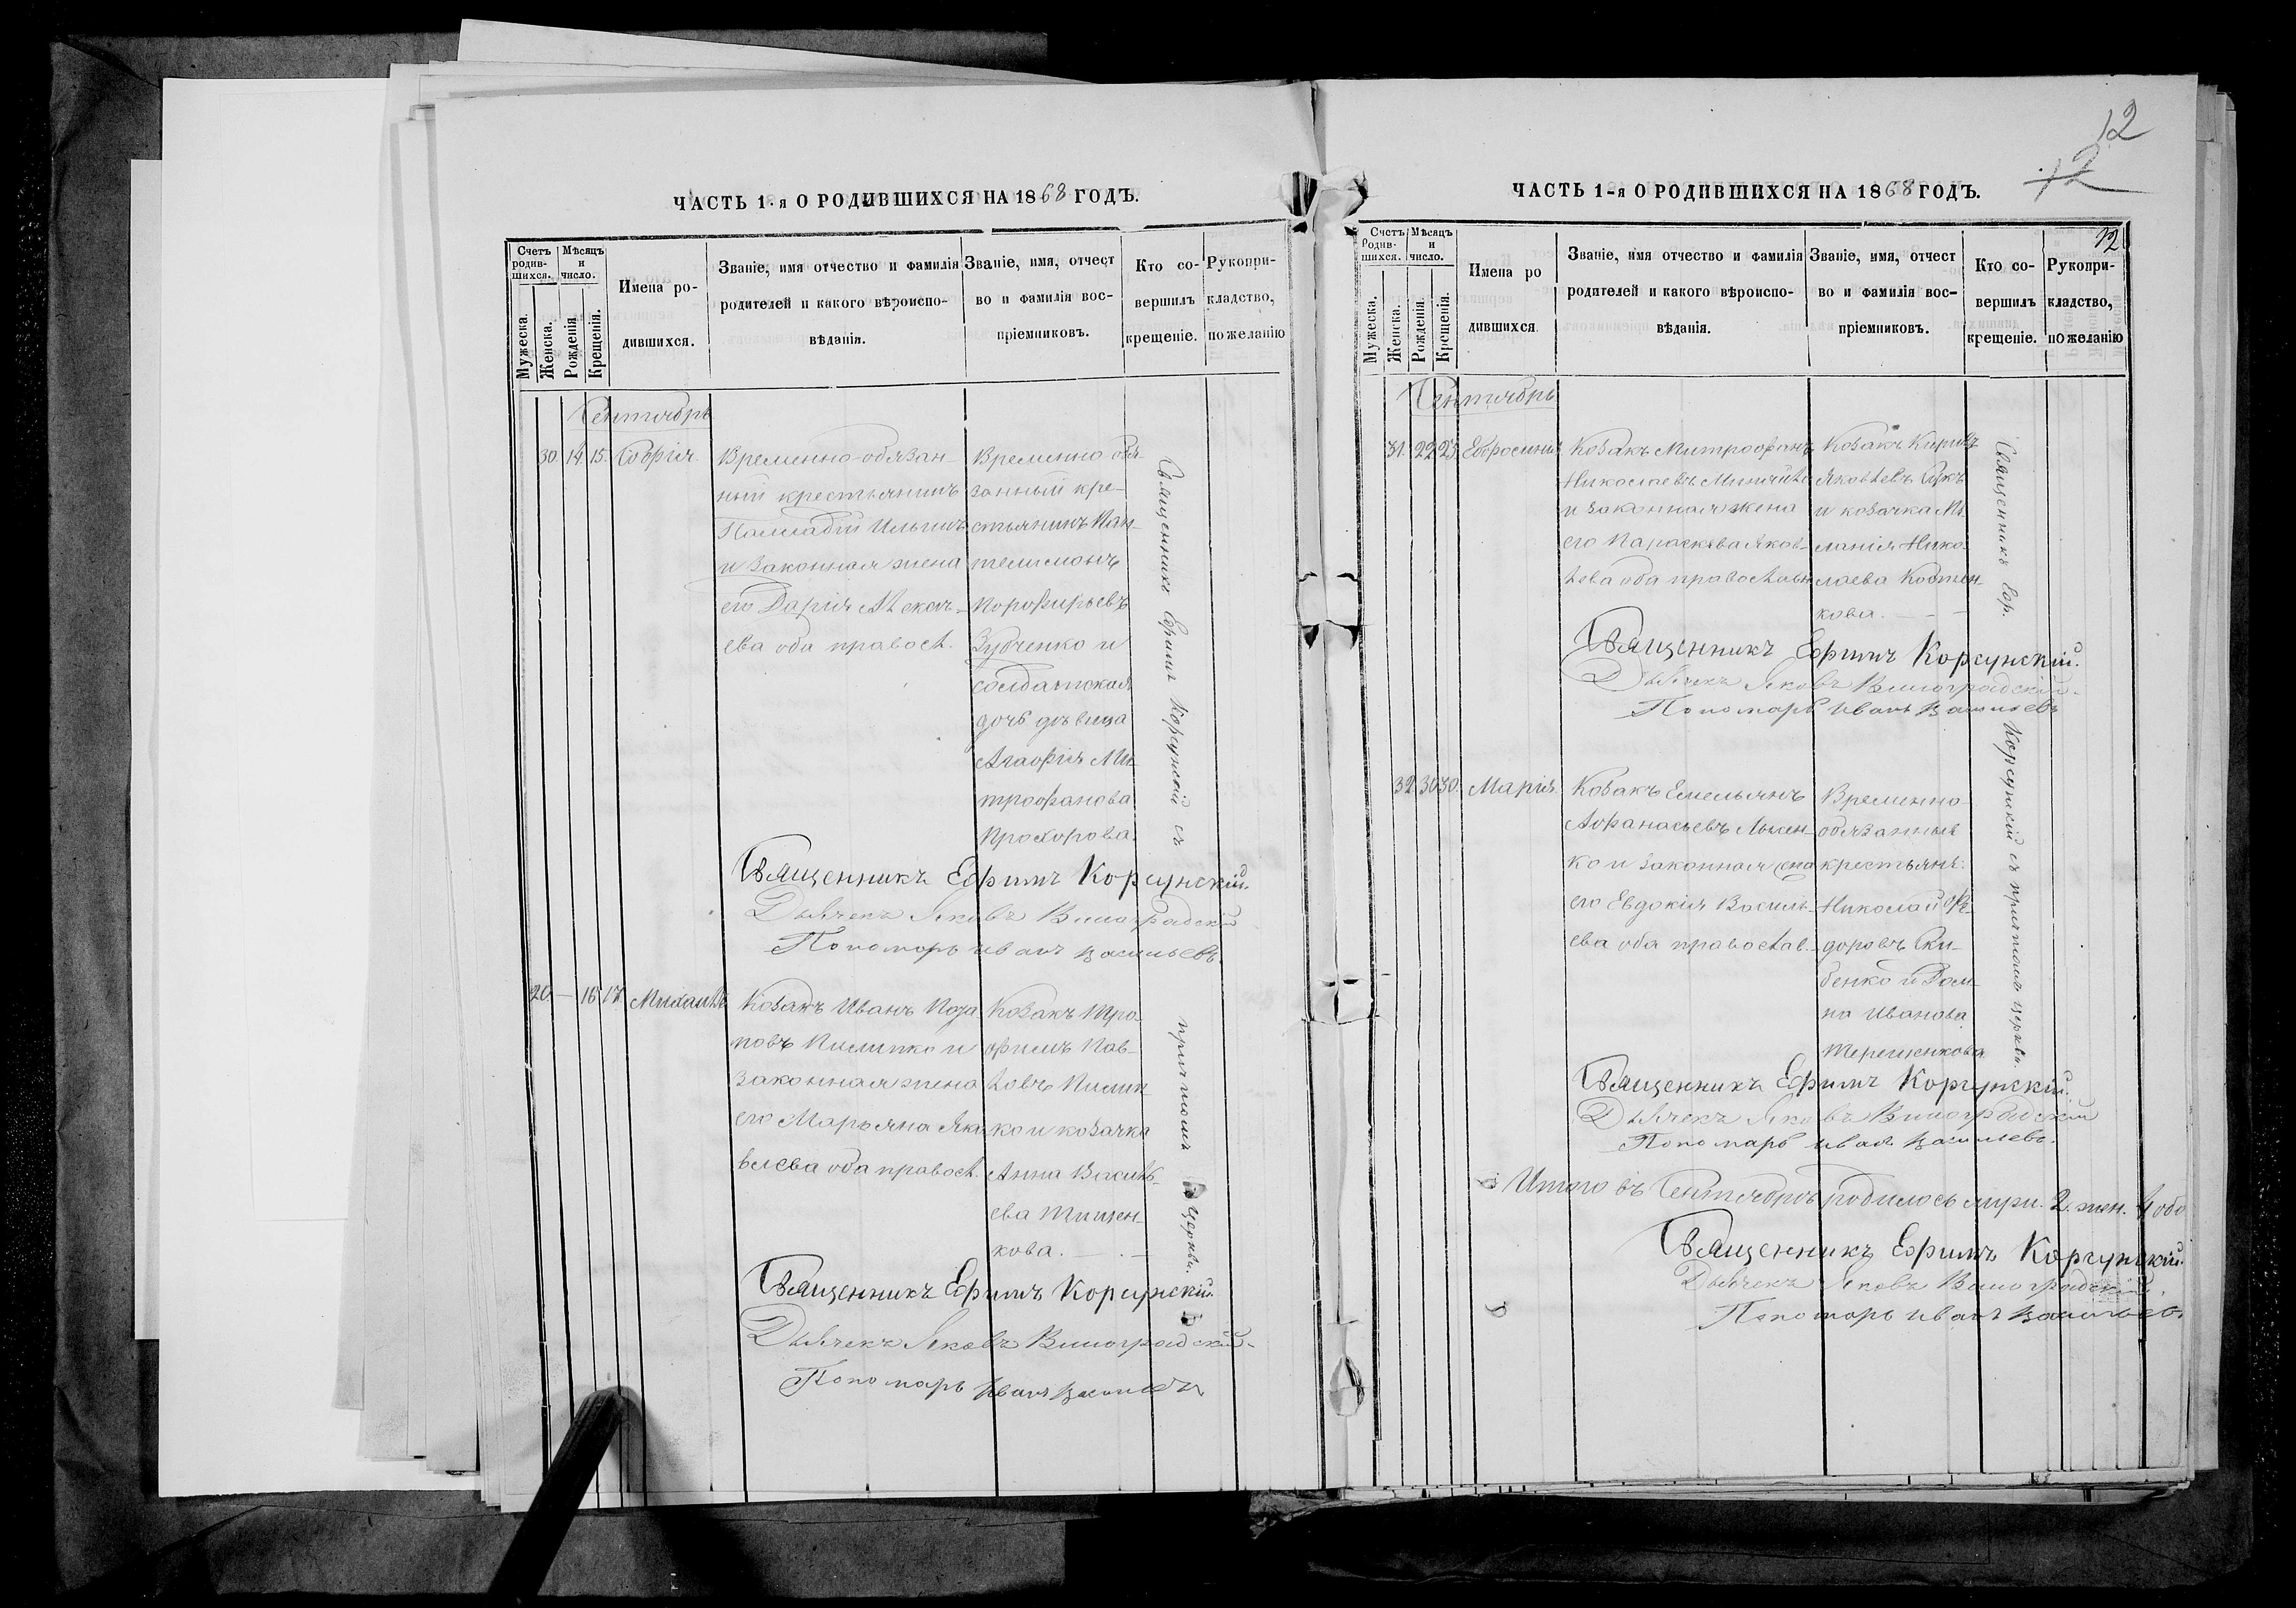 ЧАСТЬ 1-я О РОДИВШИХСЯ НА 1868 ГОДЪ.
Счетъ родив-шихся.
Мужеска.
Женска.
Мѣсяцъ и число.
Рожденія.
Крещенія.
Имена ро-
дившихся.
Званіе, имя отчество и фамилія
родителей и какого вѣроиспо-
вѣданія.
Званіе, имя, отчест
во и фамилія вос-
пріемниковъ.
Кто со-
вершилъ
крещеніе.
Рукопри-
кладство,
по желанію
Сентябрь
30. 14. 15. Софія.
Временно-обязан-
ный крестьянинъ
Палладій Ильинъ
и законная жена
его Дарія Алексѣ-
ева оба правосл.
Временно обя-
занный кре-
стьянинъ Пан-
телимонъ
Порфирьевъ
Зубченко и
солдатская
дочь дѣвица
Агафія Ми-
трофанова
Прохорова.
Священникъ Ефимъ Корсунскій съ
причтомъ церкви.
Священникъ Ефимъ Корсунскій.
Дьячекъ Яковъ Виноградскій
Пономарь Иванъ Васильевъ.
20. — 16 17. Михаилъ
Козакъ Иванъ
законная жена
его Марьяна Яко
влева оба правосл.
Козакъ Тро-
фимъ Пав-
ловъ
ко и козачка
Анна Василь-
ева Тищен-
кова.
Священникъ Ефимъ Корсунскій.
Дьячекъ Яковъ Виноградскій.
Пономарь Иванъ Васильевъ
12
12
ЧАСТЬ 1-я О РОДИВШИХСЯ НА 1868 ГОДЪ.
12
Счетъ Родив-шихся.
Мужеска.
Женска.
Мѣсяцъ и число.
Рожденія.
Крещенія.
Имена ро
дившихся.
Званіе, имя отчество и фамилія
родителей и какого вѣроиспо-
вѣданія.
Званіе, имя, отчест
во и фамилія вос-
пріемниковъ.
Кто со-
вершилъ
крещеніе.
Рукопри-
кладство,
по желанію
Сентябрь
31. 22 23. Ефросинія
Козакъ Митрофанъ
Николаевъ
и законная жена
его Параскева Яков-
лева оба православн
Козакъ Кирилъ
Яковлевъ
и козачка Ме
ланія Нико-
лаева Костен
кова. — —
Священникъ Еф.
Корсунскій съ причтомъ церкви.
Священникъ Ефимъ Корсунскій.
Дьячекъ Яковъ Виноградскій.
Пономарь Иванъ Васильевъ
32 30 30. Марія.
Козакъ Емельянъ
Афанасьевъ Лысен-
ко и законная жена
его Евдокія Василь-
ева оба православ.
Временно-
обязанные
крестьяне:
Николай Фе-
доровъ Ски-
бенко и Дом-
на Иванова
Терещенкова
Священникъ Ефимъ Корсунскій.
Дьячекъ Яковъ Виноградскій
Пономарь Иванъ Васильевъ.
Итого въ Сентябрѣ родилось муж. 2. жен. 4 обо
Священникъ Ефимъ Корсунскій.
Дьячекъ Яковъ Виноградскій.
Пономарь Иванъ Васильевъ